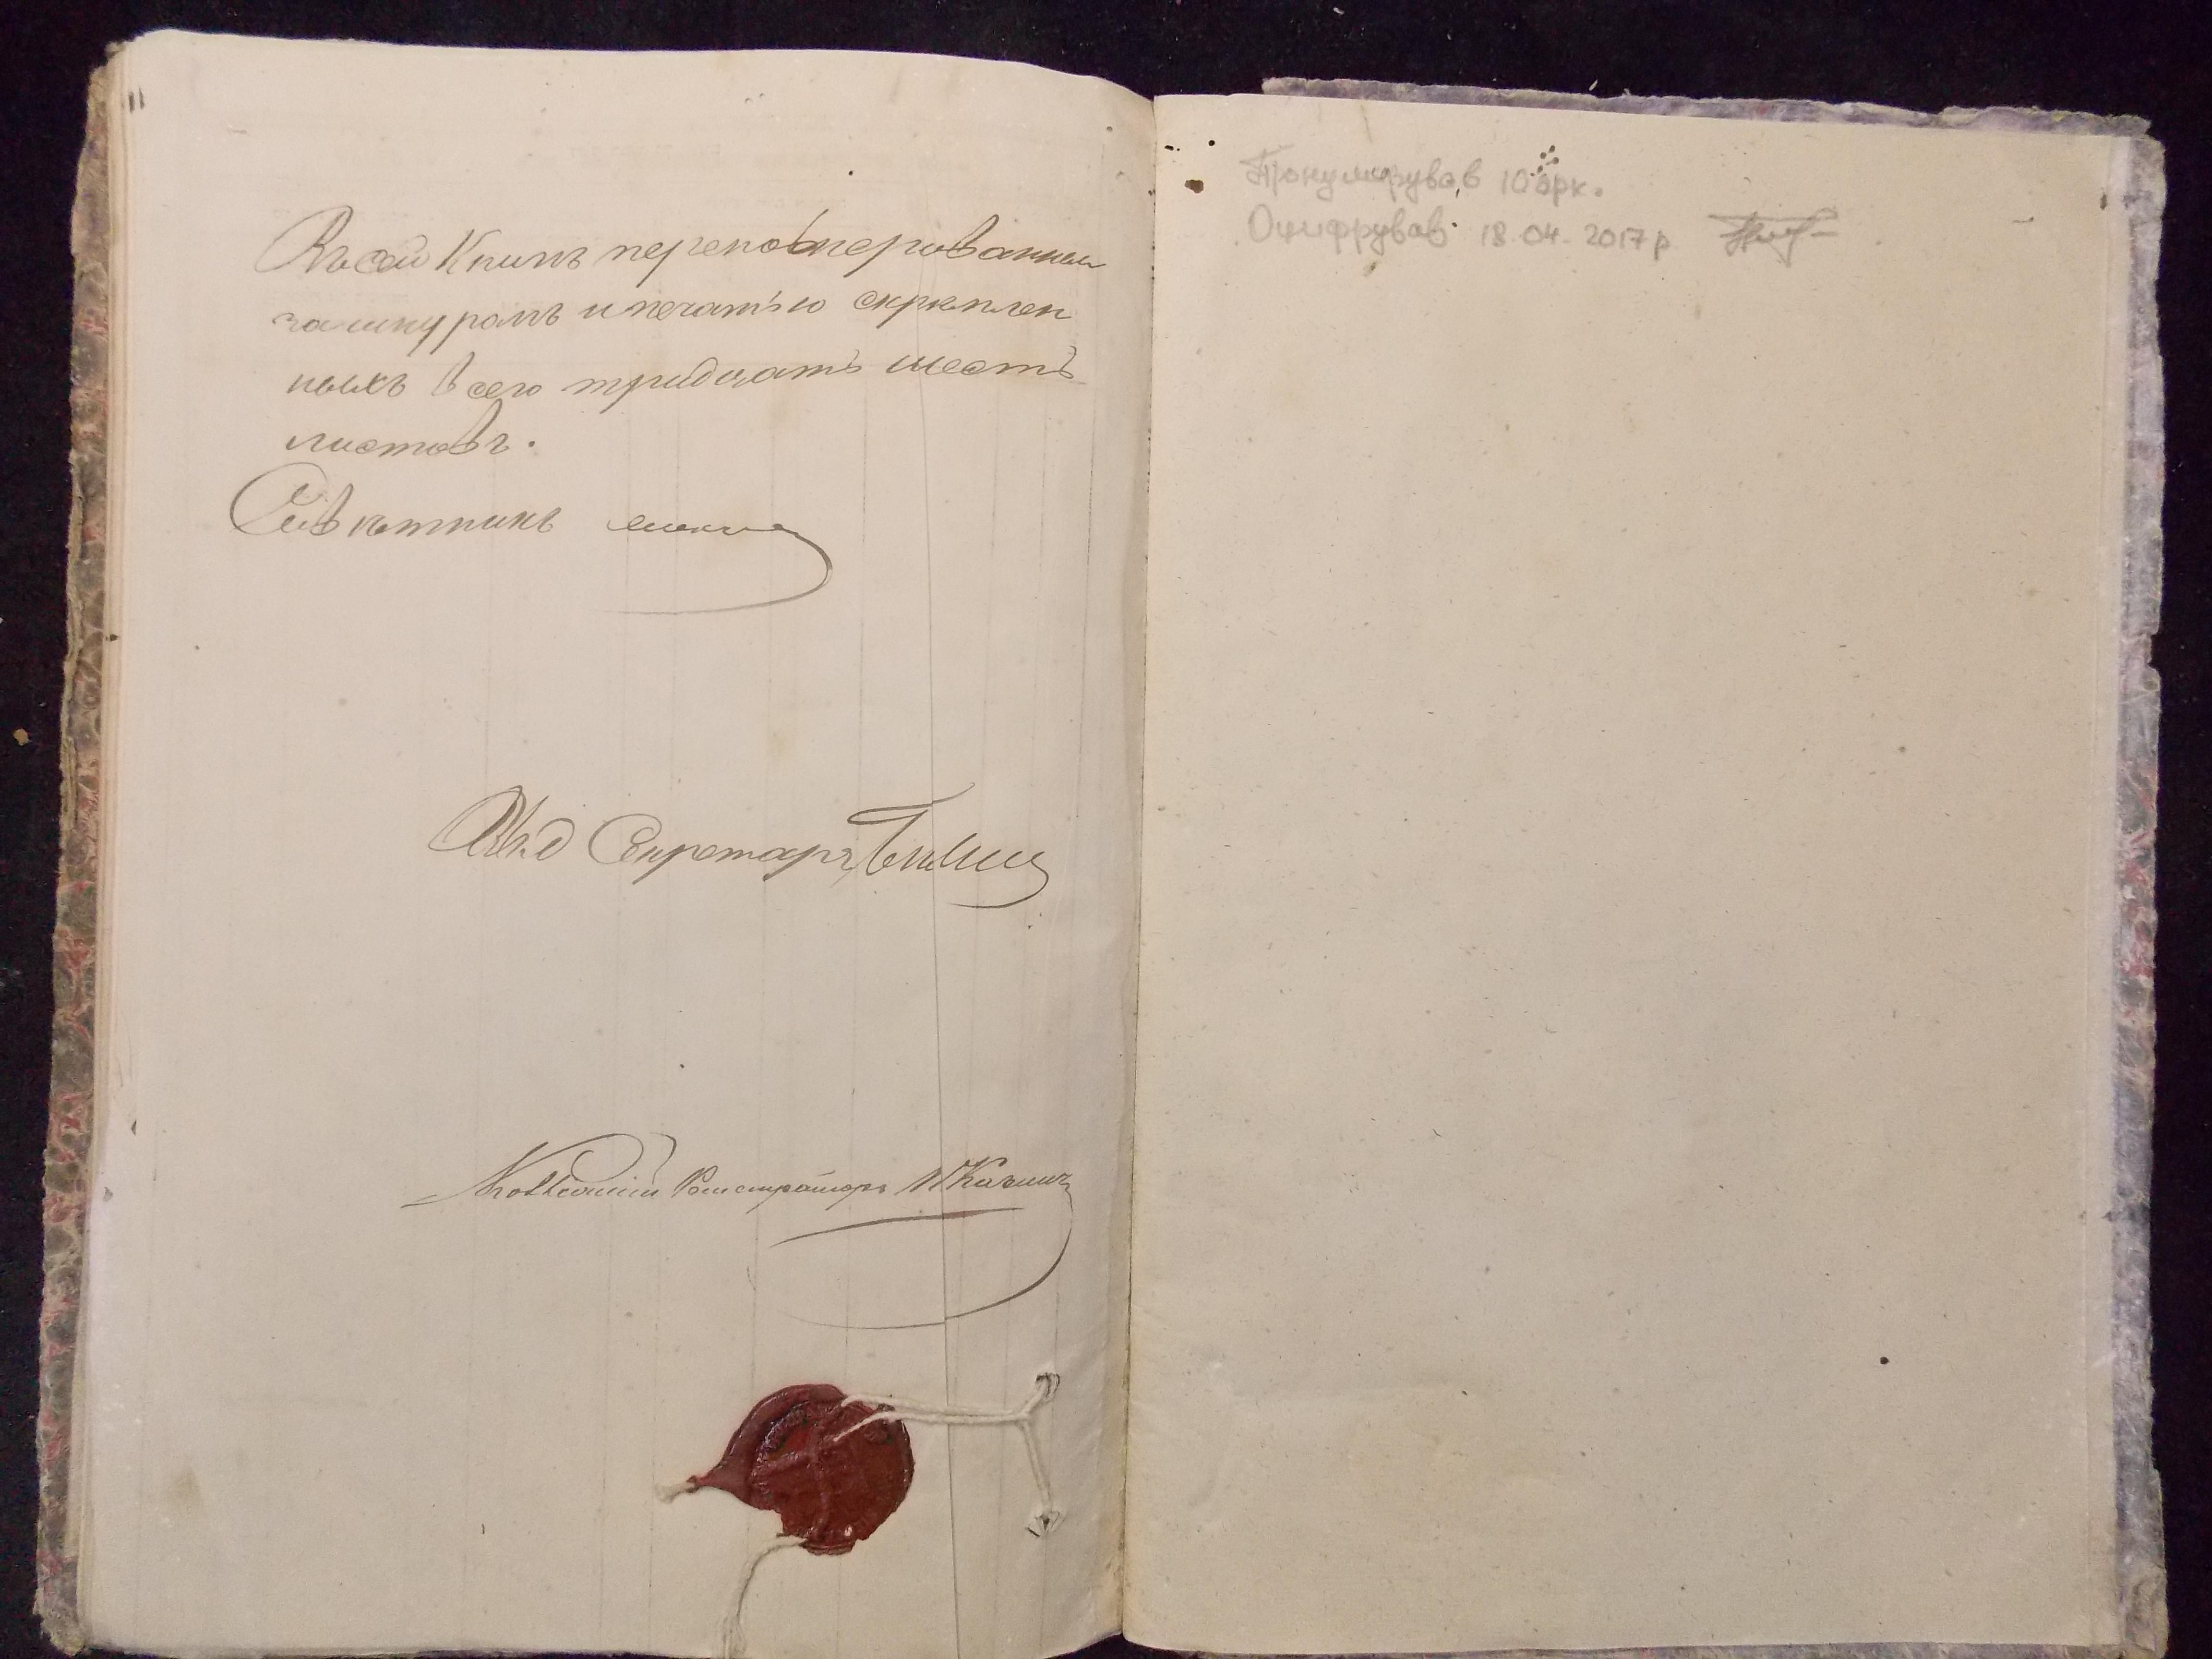 Въ сей Книгѣ переномерованныхъ
за шнуромъ и печатью скрѣплен
ныхъ всего тридцать шесть
листовъ.
Совѣтникъ
Секретарь
Коллежскій Регистраторъ
Пронумерував 10 арк.
Оцифрував 18.04.2017 р